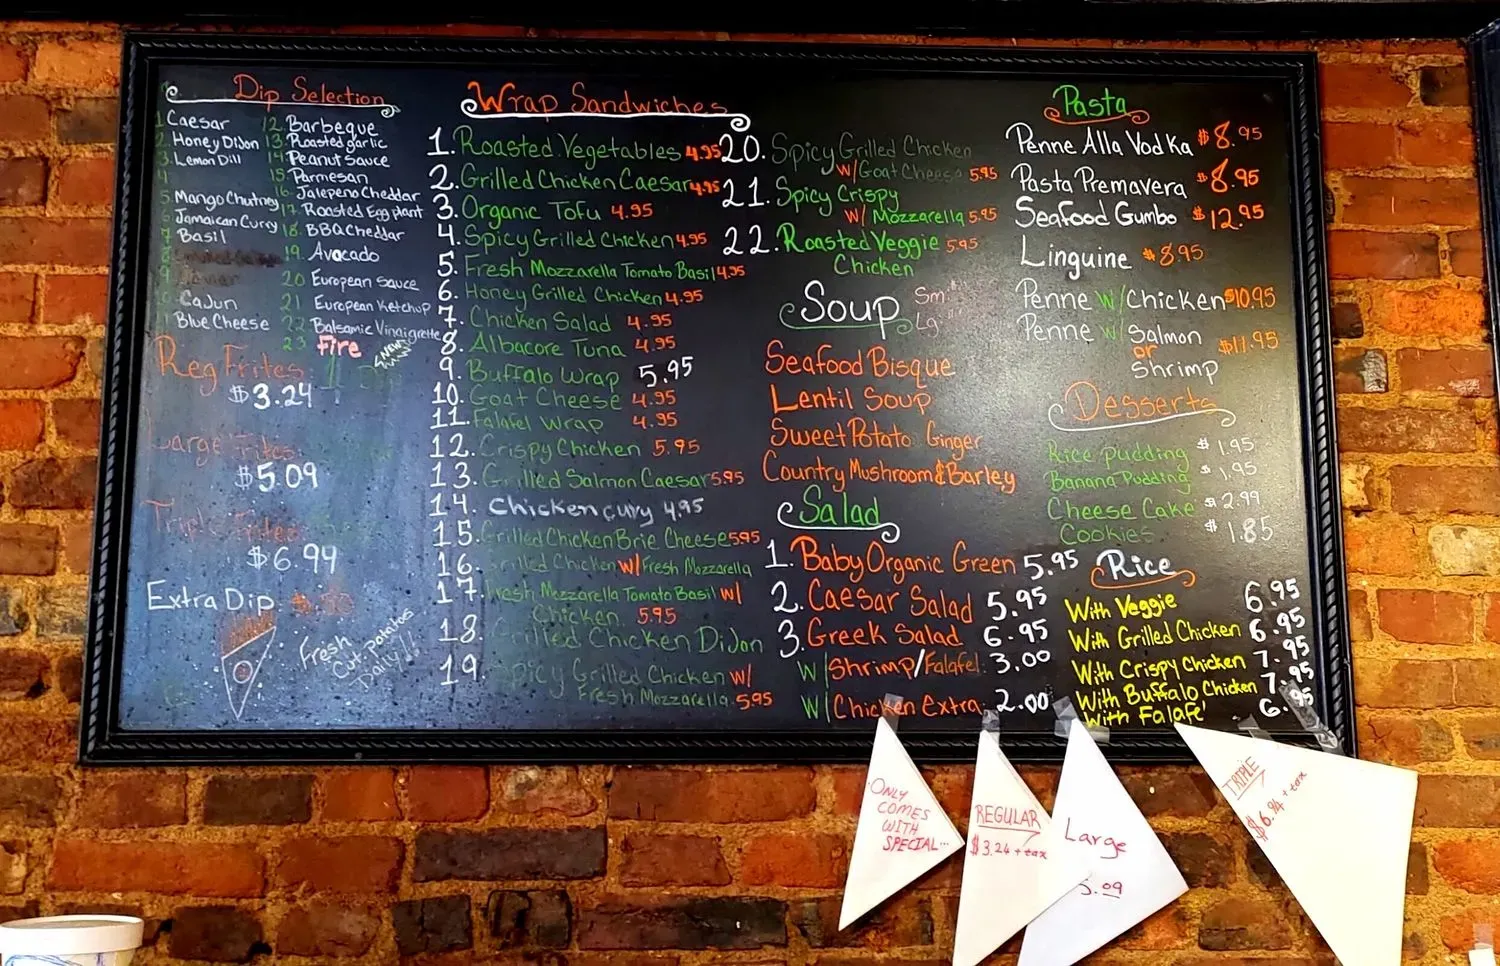 Dip Selection
1 Caesar
2. Honey DiJon
3. Lemon Dill
4
5. Mango Chutney
6 Jamaican Curry
7 Basil
8
9
10 CaJun
11 Blue Cheese
12. Barbeque
13. Roasted garlic
14. Peanut Sauce
15 Parmesan
16. Jalepeno Cheddar
17. Roasted Egg plant
18. BBQ Cheddar
19. Avocado
20 European Sauce
21 European Ketchup
22 Balsamic Vinaigrette
23 Fire
NEW
Reg Frites:
$3.24
Large Frites:
$5.09
Triple Frites:
$6.94
Extra Dip
Fresh
Cut Potatoes
Daily!!!
Wrap Sandwiches
1. Roasted Vegetables 4.95
2. Grilled Chicken Caesar 4.95
3. Organic Tofu 4.95
4. Spicy Grilled Chicken 4.95
5. Fresh Mozzarella Tomato Basil 4.95
6. Honey Grilled Chicken 4.95
7. Chicken Salad 4.95
8. Albacore Tuna 4.95
9. Buffalo Wrap 5.95
10. Goat Cheese 4.95
11. Falafel Wrap 4.95
12. Crispy Chicken 5.95
13. Grilled Salmon Caesar 5.95
14. Chicken Curry 4.95
15. Grilled Chicken Brie Cheese 5.95
16. Grilled Chicken w/ Fresh Mozzarella
17. Fresh Mozzarella Tomato Basil w/
Chicken 5.95
18. Grilled Chicken DiJon
19. Spicy Grilled Chicken w/
Fresh Mozzarella 5.95
20. Spicy Grilled Chicken
w/ Goat Cheese 5.95
21. Spicy Crispy
w/ Mozzarella 5.95
22. Roasted Veggie 5.95
Chicken
Soup
Sm.
Lg.
Seafood Bisque
Lentil Soup
Sweet Potato Ginger
Country Mushroom & Barley
Salad
1. Baby Organic Green 5.95
2. Caesar Salad 5.95
3. Greek Salad 6.95
W/ Shrimp/Falafel: 3.00
W/ Chicken Extra: 2.00
Pasta
Penne Alla Vodka $8.95
Pasta Premavera $8.95
Seafood Gumbo $12.95
Linguine $8.95
Penne w/ Chicken $10.95
Penne w/ Salmon
or $11.95
Shrimp
Desserts
Rice Pudding $1.95
Banana Pudding $1.95
Cheese Cake $2.99
Cookies $1.85
Rice
With Veggie 6.95
With Grilled Chicken 6.95
With Crispy Chicken 7.95
With Buffalo Chicken 7.95
With Falafel 6.95
ONLY
COMES
WITH
SPECIAL...
REGULAR
$3.24 + tax
Large
5.09
TRIPLE
$6.94 + tax